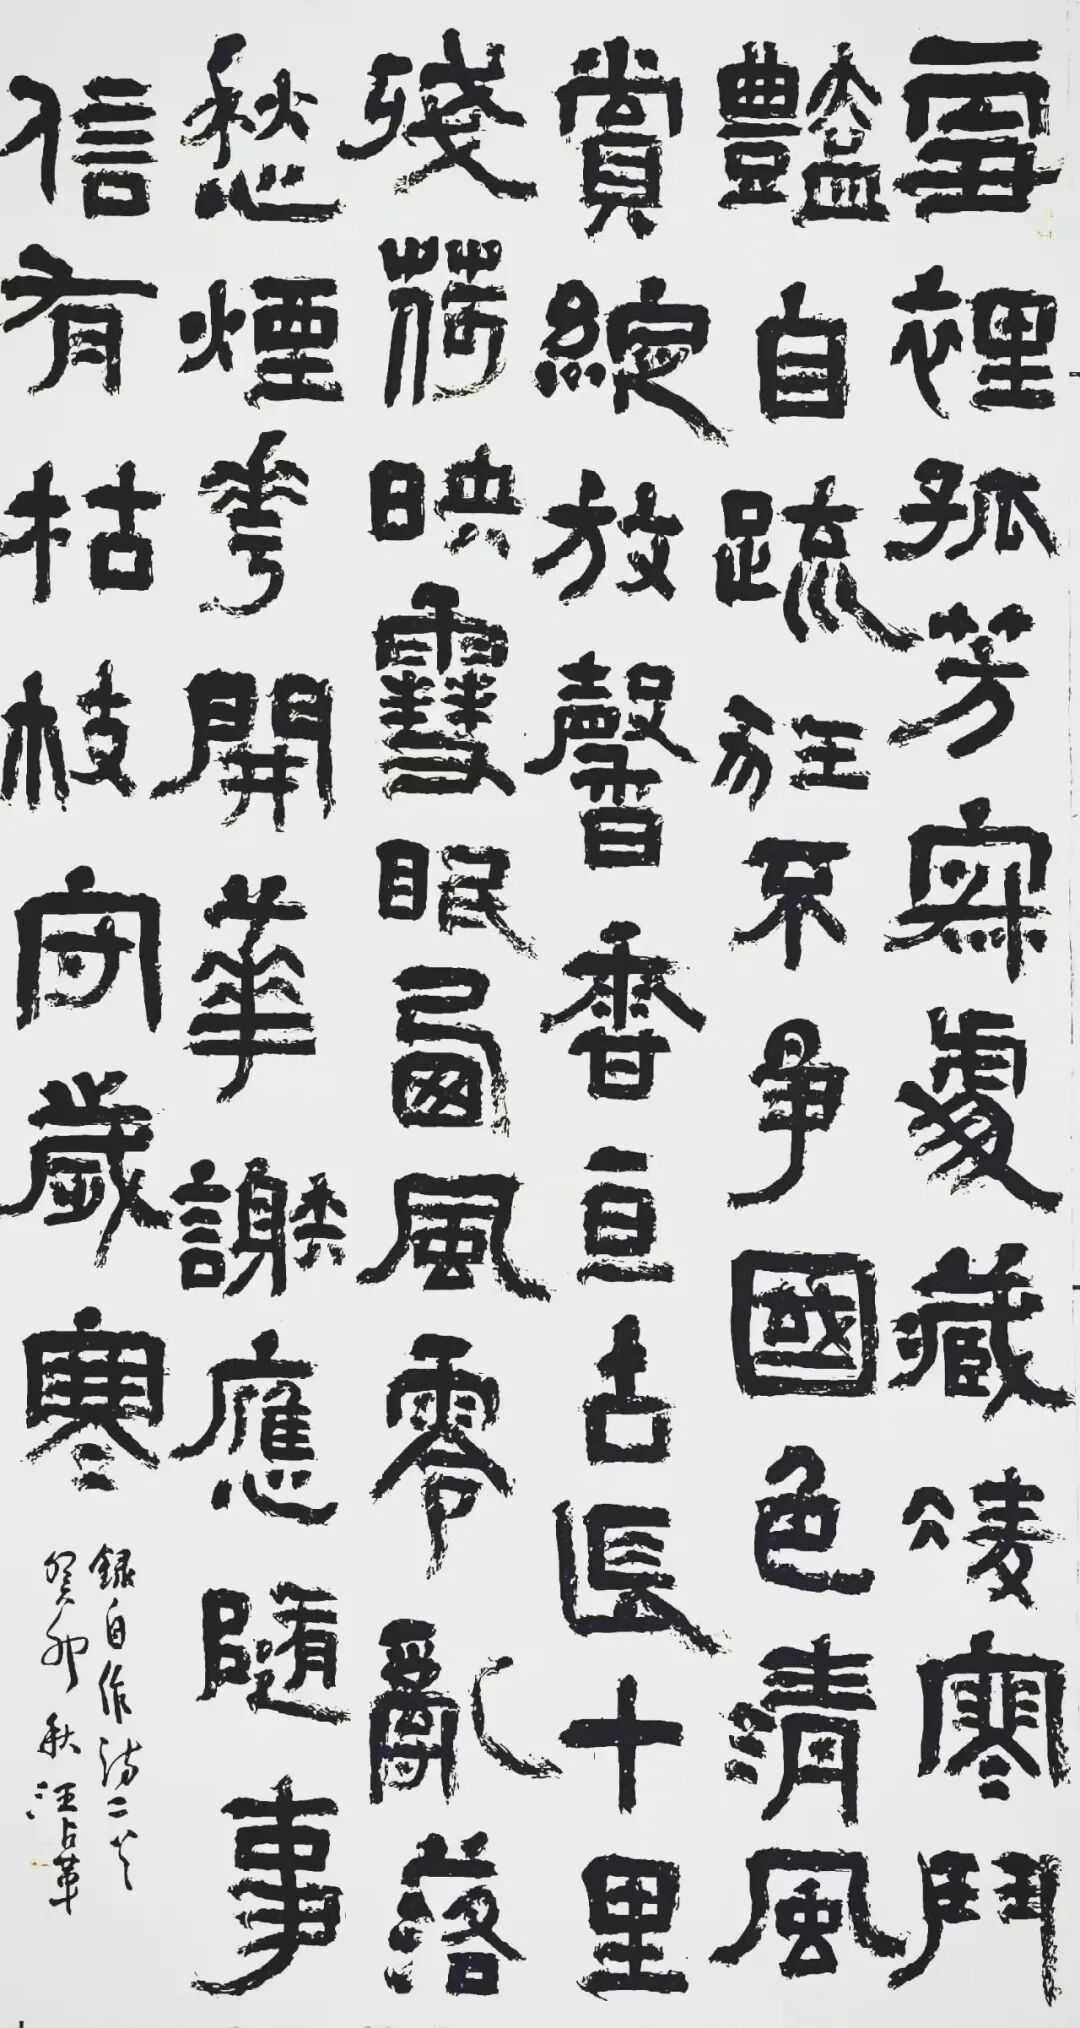 雪裡孤芳寂處藏凌寒鬥
豔自疏狂不爭國色清風
賞綻放馨香亘古長十里
殘荷映雪眠西風零亂落
愁煙花開華謝應隨事
信有枯枝守歲寒
錄自作詩二首
癸卯秋汪占革